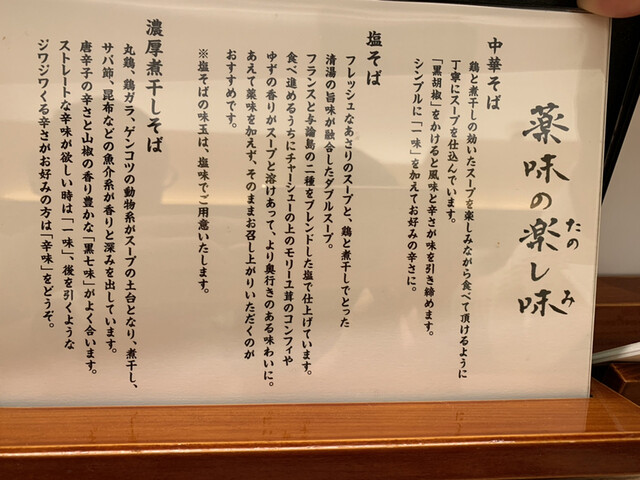 薬味の楽し味
たの み
中華そば
鶏と煮干しの効いたスープを楽しみながら食べて頂けるように
丁寧にスープを仕込んでいます。
「黒胡椒」をかけると風味と辛さが味を引き締めます。
シンプルに「一味」を加えてお好みの辛さに。
塩そば
フレッシュなあさりのスープと、鶏と煮干しでとった
清湯の旨味が融合したダブルスープ。
フランスと与論島の二種をブレンドした塩で仕上げています。
食べ進めるうちにチャーシューの上のモリーユ茸のコンフィや
ゆずの香りがスープと溶けあって、より奥行きのある味わいに。
あえて薬味を加えず、そのままお召し上がりいただくのが
おすすめです。
※塩そばの味玉は、塩味でご用意いたします。
濃厚煮干しそば
丸鶏、鶏ガラ、ゲンコツの動物系がスープの土台となり、煮干し、
サバ節、昆布などの魚介系が香りと深みを出しています。
唐辛子の辛さと山椒の香り豊かな「黒七味」がよく合います。
ストレートな辛味が欲しい時は「一味」、後を引くような
ジワジワくる辛さがお好みの方は「辛味」をどうぞ。